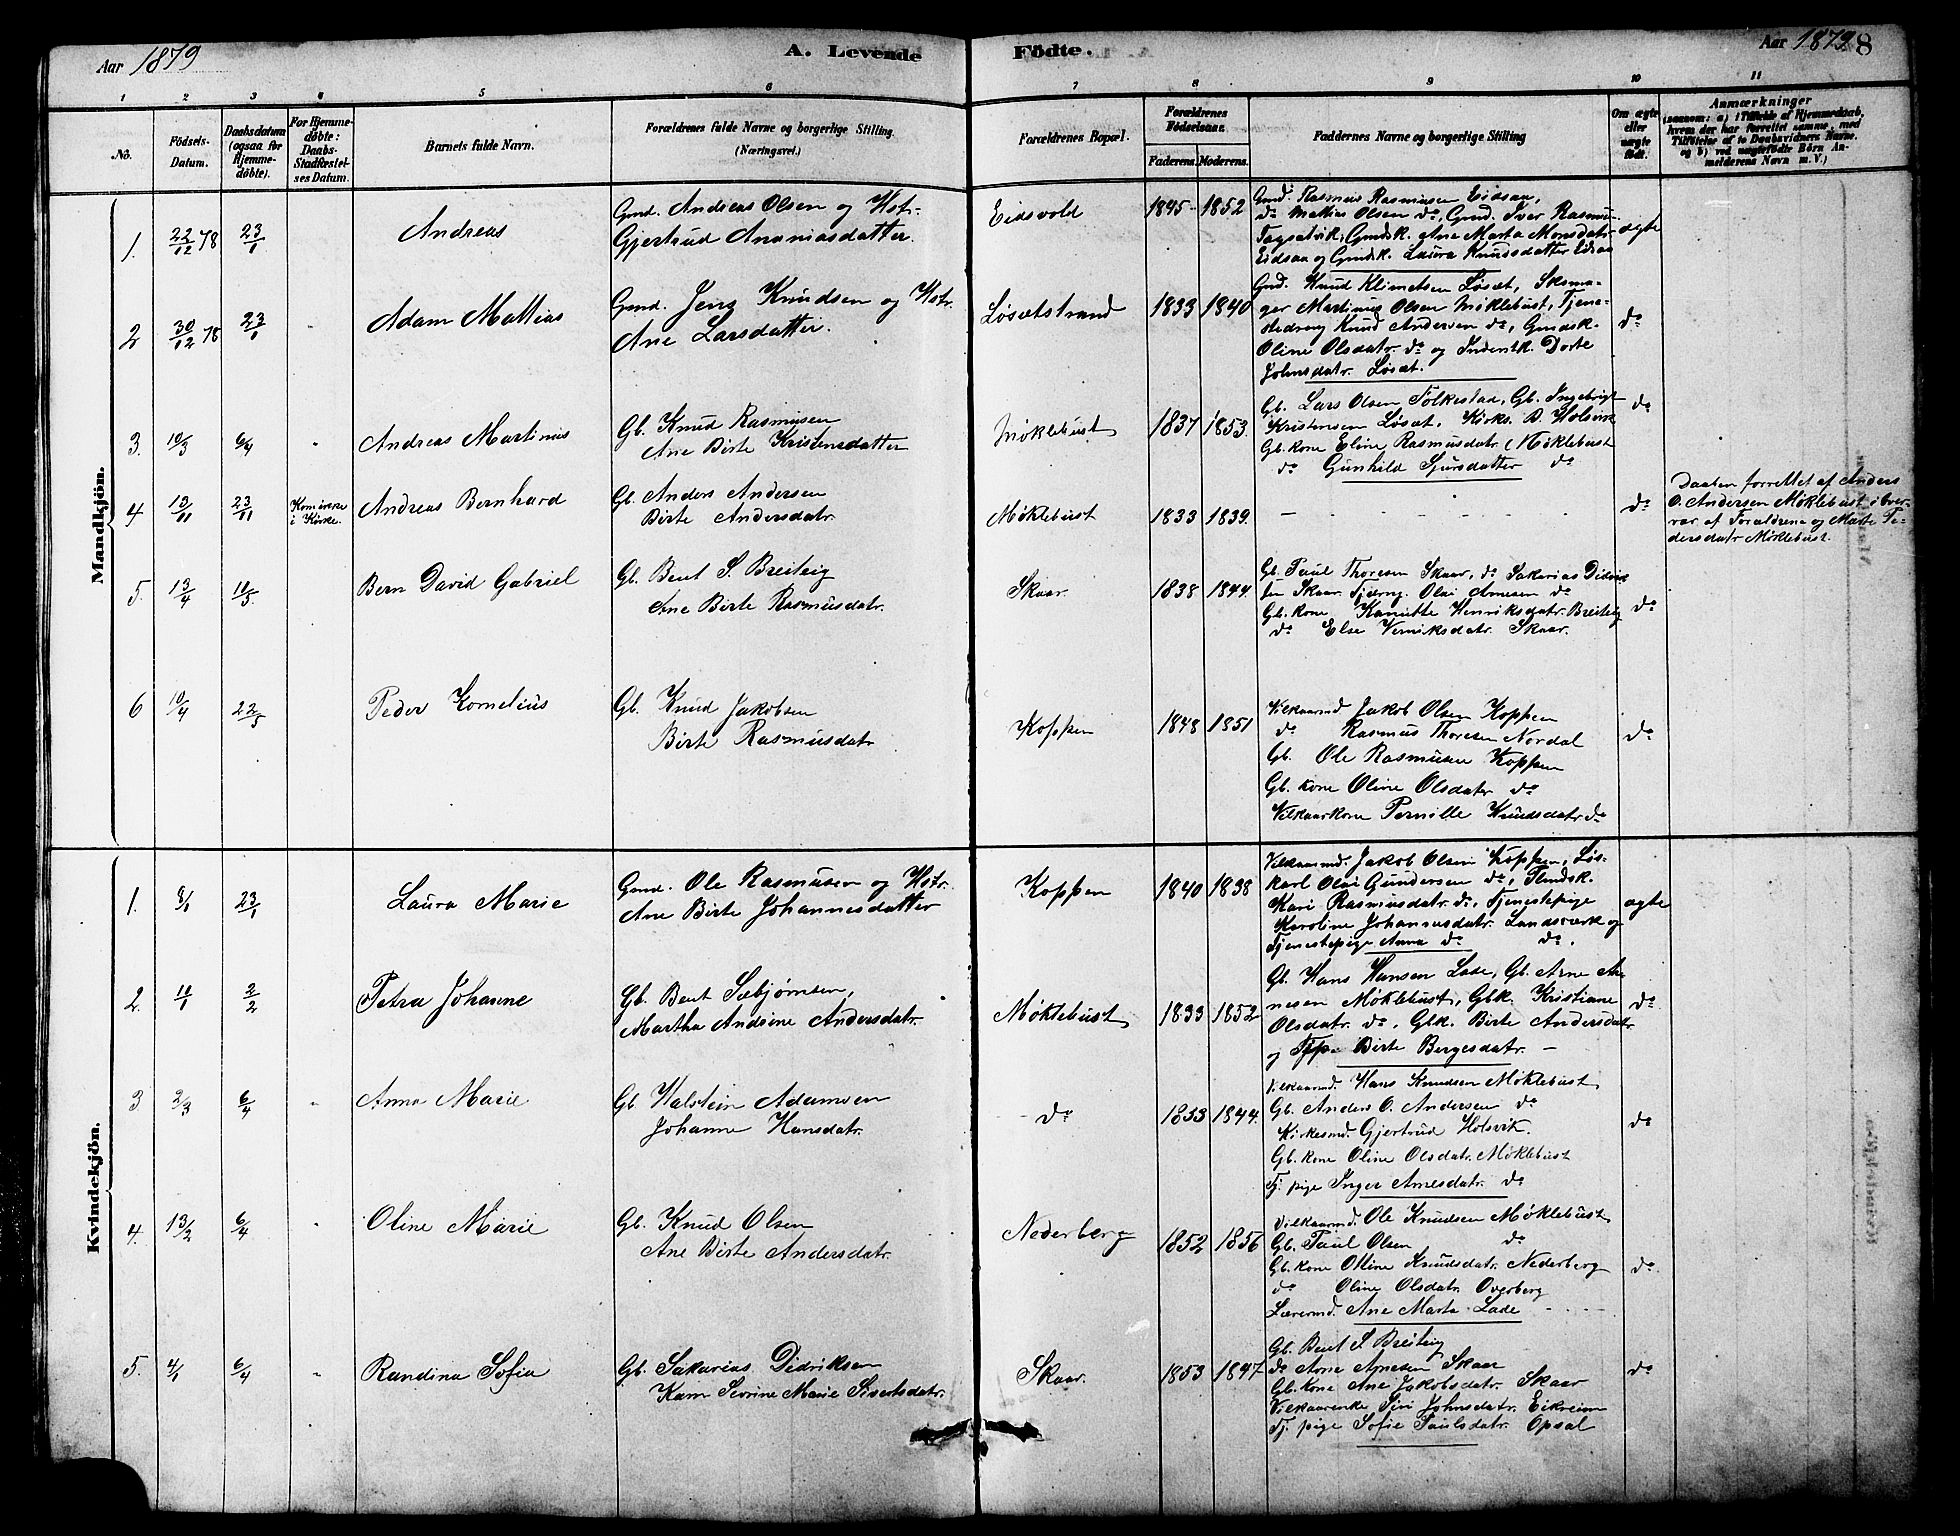 Aar 1879
A. Levende
Födte.
Aar 1879.
8
1 2 3 4 5 6 7 8 9 10 11
No.
Födsels-Datum.
Daabsdatum (ogsaa for Hjemme-döbte).
For Hjemme-döbte: Daabs-Stadfæstel-ses Datum.
Barnets fulde Navn.
Forældrenes fulde Navne og borgerlige Stilling. (Næringsvei.)
Forældrenes Bopæl.
Forældrenes Födselsaar.
Faderens. Moderens.
Faddernes Navne og borgerlige Stilling
Om ægte eller uægte födt.
Anmærkninger
(saasom: a) i Tilfælde af Hjemmedaab, hvem der har forrettet samme, med Tilföielse af to Daabsvidners Navne, og b) ved uægtefödte Börn An-melderens Navn m. V.)
Mandkjön.
1. 22/12 78 23/1 Andreas
Gmd. Andreas Olsen og Hstr.
Gjertrud Ananiasdatter.
Eidsvold 1845 1852
Gmd. Rasmus Rasmusen Eidsaa,
do Mattias Olsen do, Gmd. Iver Rasmus.
Tagsatvik, Gmdsk. Ane Marta Monsdatr
Eidsaa og Gmdsk. Laura Knudsdatter Eidsaa
ægte
2 30/12 78 23/1 " Adam Mattias
Gmd. Jens Knudsen og Hstr.
Ane Larsdatter.
Løsætstrand 1833 1840
Gmd. Knud Klimetsen Løsæt, Skoma-
ger Martinus Olsen Møklebust, Tjene-
stedreng Knud Andersen do, Gmdsk.
Oline Olsdatr. do og Inderstk. Dorte
Johnsdatr. Løsæt.
do
3. 10/3 6/4 " Andreas Martinus
Gb. Knud Rasmusen
Ane Birte Kristensdatter
Møklebust 1837 1853.
Gb. Lars Olsen Folkestad, Gb. Ingebrigt
Kristensen Løsæt. Kirks. D. Holsvik
Gb. kone Eline Rasmusdatr. Møklebust
do Gunhild Sjursdatter do
do
4 13/11 23/11 i Kirke. Andreas Bernhard
Gb. Anders Andersen
Birte Andersdatr.
Møklebust 1833 1839.
- - - - - -
do
Daaben forrettet af Anders
O. Andersen Møklebust i over-
vær af Forældrene og Marte Pe-
dersdatr Møklebust.
5. 13/4 11/5. Bern David Gabriel
Gb. Bent S. Breiteig
Ane Birte Rasmusdatr.
Skaar. 1838 1844.
Gb. Paul Thoresen Skaar, do Sakarias Didrik
sen Skaar. Olai Arnesen do
Gb. kone Kanutte Henriksdatr. Breiteig
do Else Verniksdatr. Skaar.
do
6 10/4 22/5 Peder Kornelius
Gb. Knud Jakobsen
Birte Rasmusdatr
Koppen 1848 1851
Vilkaarmd Jakob Olsen Koppen
do Rasmus Thoresen Nordal
Gb. Ole Rasmusen Koppen
Gb. kone Oline Olsdatr do
Vilkaarkone Pernille Knudsdatr. do
do
Kvindekjön.
1. 8/1 23/1 Laura Marie
Gmd. Ole Rasmusen og Hstr.
Ane Birte Johannesdatter
Koppen 1840 1838
Vilkaarmd. Jakob Olsen Koppen, Løs-
karl Olai Gundersen do,
Kari Rasmusdatr. do, Tjenestepige
Karoline Johannesdatr. Landsværk og
Tjenestepige Anna do do.
ægte
2. 10/1 2/2 Petra Johanne
Gb. Bent Sæbjørnsen,
Martha Andrine Andersdatr.
Møklebust 1833 1852
Gb. Hans Hansen Lade, Gb. Arne Ar-
nesen Møklebust, Gbk. Kristiane
Olsdatr. do, Gbk. Birte Andersdatr
og Birte Bergesdatr. -
do
3 2/3 6/4 " Anna Marie
Gb. Halstein Adamsen
Johanne Hansdatr.
do 1833 1844.
Vilkaarmd. Hans Knudsen Møklebust
Gb. Anders O. Andersen do
Kirkesmd. Gjertrud Holsvik.
Gb. kone Oline Olsdatr. Møklebust
Tj. pige Inger Arnesdatr. do
do
4. 13/2 6/4 " Oline Marie
Gb. Knud Olsen
Ane Birte Andersdatr.
Nederberg 1852 1856
Vilkaarmd. Ole Knudsen Møklebust
Gb. Paul Olsen do
Gb. kone Oline Knudsdatr. Nederberg
do Oline Olsdatr. Overberg
Lærermd. Ane Marta Lade
do.
5. 4/1 6/4 " Randina Sofia
Gb. Sakarias Didriksen
Karn Serine Marie Sivertsdatr.
Skaar. 1853 1847
Gb. Bent S Breiteig
do Arne Arnesen Skaar
Gb. kone Ane Jakobsdatr. Skaar
Vilkaarenke Siri Johnsdatr. Eikreim
Tj. pige Sofie Paulsdatr. Opsal
do